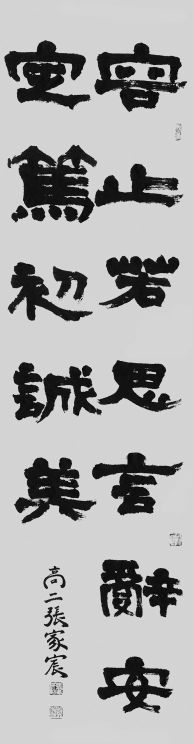 容止若思言辭安
定篤初誠美
高二張家宸